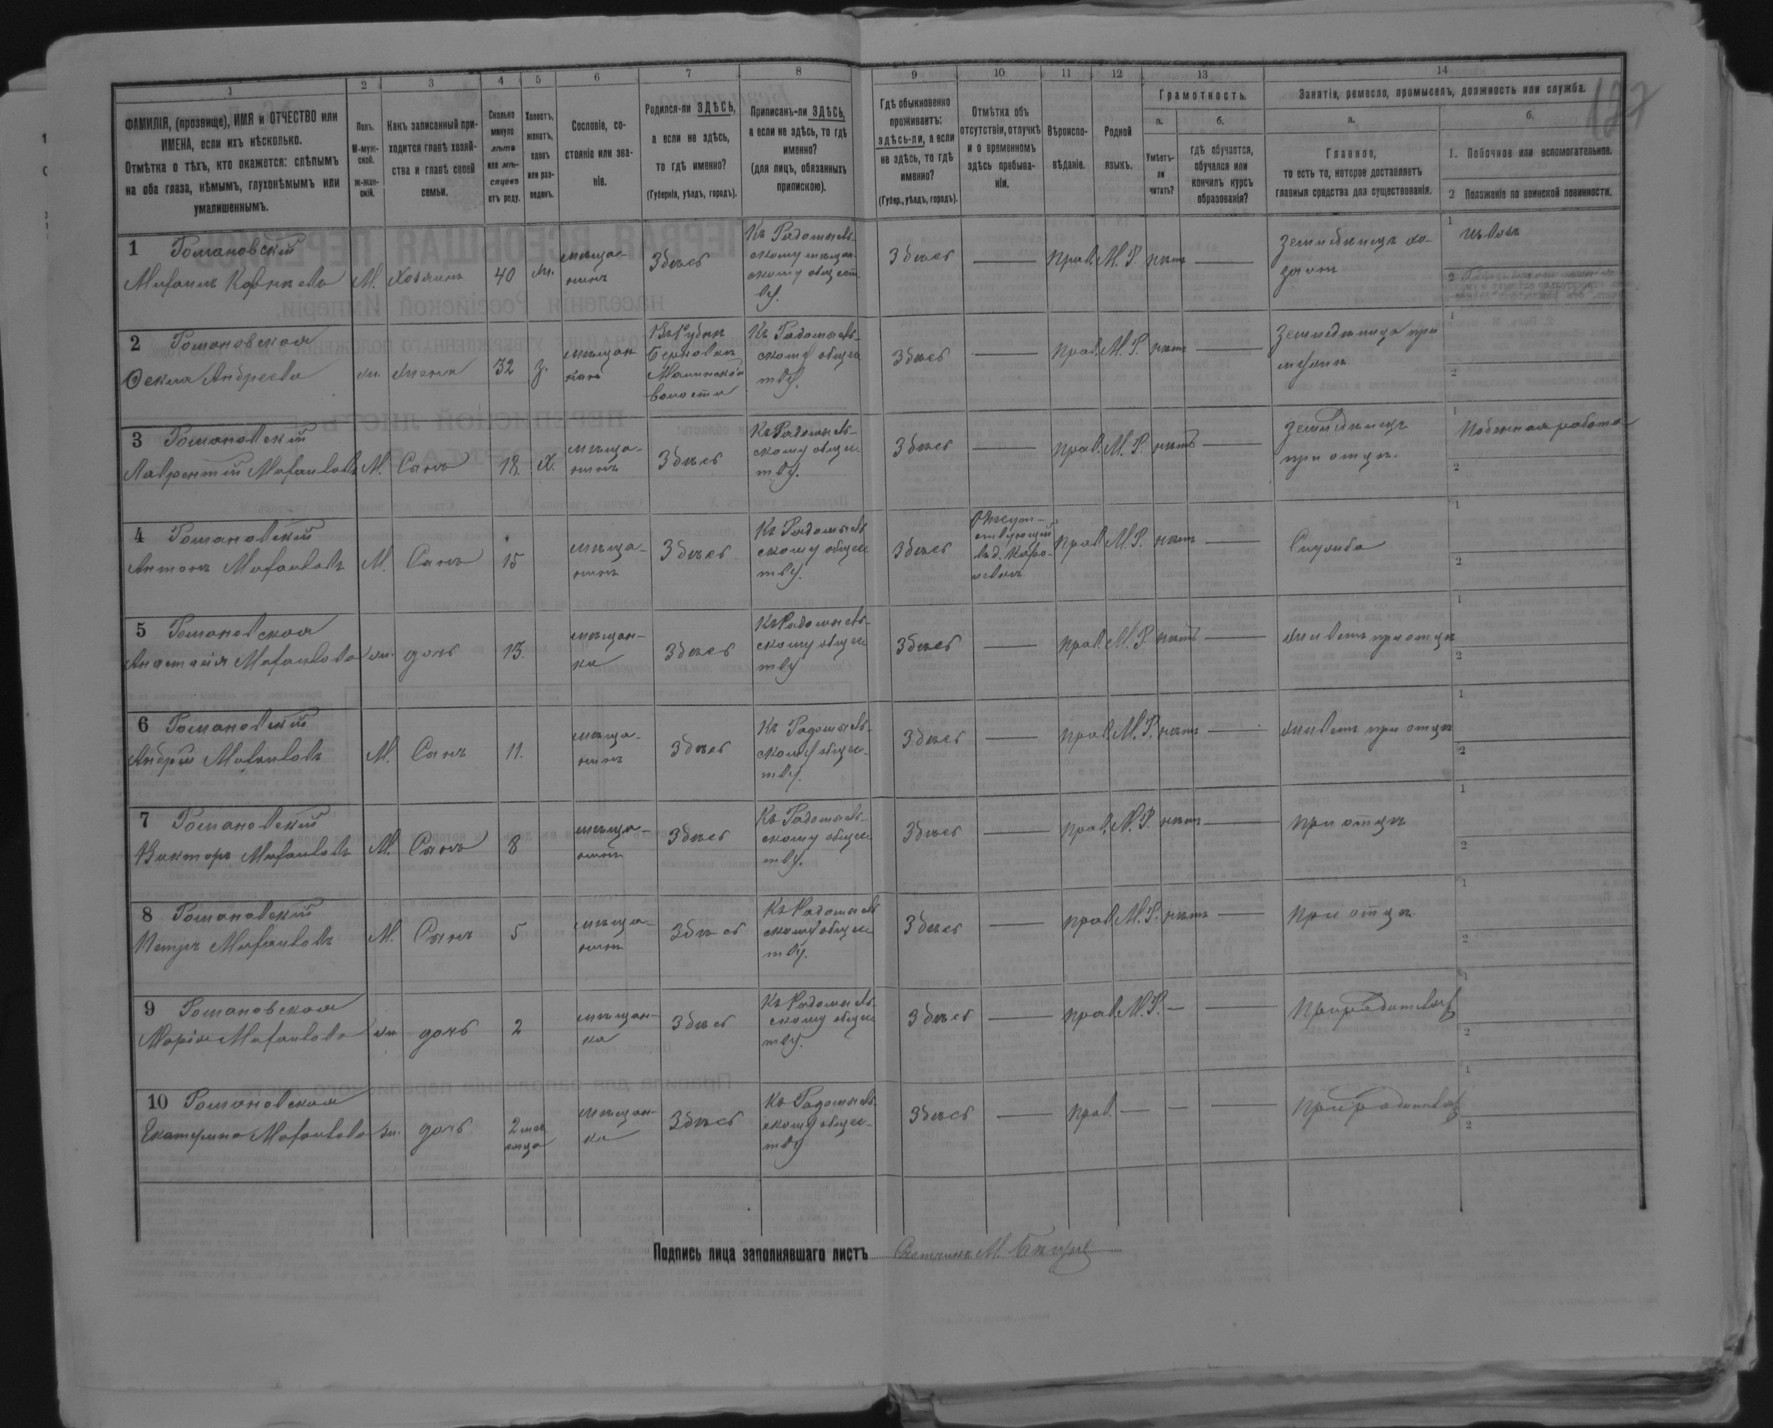 1 2 3 4 5 6 7 8 9 10 11 12 13 14
ФАМИЛІЯ, (прозвище), ИМЯ и ОТЧЕСТВО или
ИМЕНА, если ихъ нѣсколько.
Отмѣтка о тѣхъ, кто окажется: слѣпымъ
на оба глаза, нѣмымъ, глухонѣмымъ или
умалишеннымъ.
Полъ.
М-муж-
ской.
Ж-жен-
скій.
Какъ записанный при-
ходится главѣ хозяй-
ства и главѣ своей
семьи.
Сколько
минуло
лѣтъ
или мѣ-
сяцевъ
отъ роду.
Холостъ,
женатъ,
вдовъ
или раз-
веденъ.
Сословіе, со-
стояніе или зва-
ніе.
Родился-ли ЗДѢСЬ,
а если не здѣсь,
то гдѣ именно?
(Губернія, уѣздъ, городъ).
Приписанъ-ли ЗДѢСЬ,
а если не здѣсь, то гдѣ
именно?
(для лицъ, обязанныхъ
припискою).
Гдѣ обыкновенно
проживаетъ:
здѣсь-ли, а если
не здѣсь, то гдѣ
именно?
(Губер., уѣздъ, городъ).
Отмѣтка объ
отсутствіи, отлучкѣ
и о временномъ
здѣсь пребыва-
ніи.
Вѣроиспо-
вѣданіе.
Родной
языкъ.
Грамотность.
а.
Умѣетъ-
ли
читать?
б.
гдѣ обучается,
обучался или
кончилъ курсъ
образованія?
Занятія, ремесло, промыселъ, должность или служба.
а.
Главное,
то есть то, которое доставляетъ
главныя средства для существованія.
б.
1. Побочное или вспомогательное.
2 Положеніе по воинской повинности.
1 Гошановскій
Михаилъ М. Хозяинъ 40 ж.
мѣща-
нинъ
Здѣсь
Къ Радомысль-
скому мѣщан-
скому общест-
ву.
Здѣсь — прав. М. Р. нѣтъ —
Земледѣлецъ хо-
1
2
2 Гошановская
Фекла Андреева ж. жена 32 з.
мѣщан
волости
Къ Радомысль-
скому общес
тву.
Здѣсь — прав. М. Р. нѣтъ —
при
мужѣ
1
2
3 Гошановскій
Лаврентій Михаиловъ М. Сынъ 18 х.
мѣща-
нинъ
Здѣсь
Къ Радомысль-
скому общес
тву.
Здѣсь — прав. М. Р. нѣтъ —
Земледѣлецъ
при отцѣ.
1
2
4 Гошановскій
Антонъ Михаиловъ М. Сынъ 15
мѣща-
нинъ
Здѣсь
Къ Радомысль
скому общес
тву.
Здѣсь
Отсут-
ствующій
прав М. Р. нѣтъ —
Служба
1
2
5 Гошановская
Анастасія Михаилова жн. дочь 13.
мѣщан-
ка
Здѣсь
Къ Радомысль-
скому общес
тву
Здѣсь — прав. М. Р. нѣтъ —
живетъ при отцѣ
1
2
6 Гошановскій
Андрей Михаиловъ М. Сынъ 11.
мѣща-
нинъ
Здѣсь
Къ Радомысль-
скому общес-
тву.
Здѣсь — прав. М. Р. нѣтъ —
живетъ при отцѣ
1
2
7 Гошановскій
Викторъ Михаиловъ М. Сынъ 8
мѣща-
нинъ
Здѣсь
Къ Радомысль-
скому общес
тву.
Здѣсь — прав. М. Р. нѣтъ —
при отцѣ
1
2
8 Гошановскій
Петръ Михаиловъ М. Сынъ 5
мѣща-
нинъ
Здѣсь
Къ Радомысль
скому общес
тву.
Здѣсь — прав. М. Р. нѣтъ —
При отцѣ
1
2
9 Гошановская
Марія Михаилова жн дочь 2
мѣщан-
ка
Здѣсь
Къ Радомысль
скому общес
тву.
Здѣсь — прав М. Р. — —
При родителяхъ
1
2
10 Гошановская
Екатерина Михаилова жн. дочь
2 мѣ
сяца
мѣщан-
ка
Здѣсь
Къ Радомысль
скому общес-
тву
Здѣсь — прав. — — —
При родителяхъ
1
2
Подпись лица заполнявшаго листъ